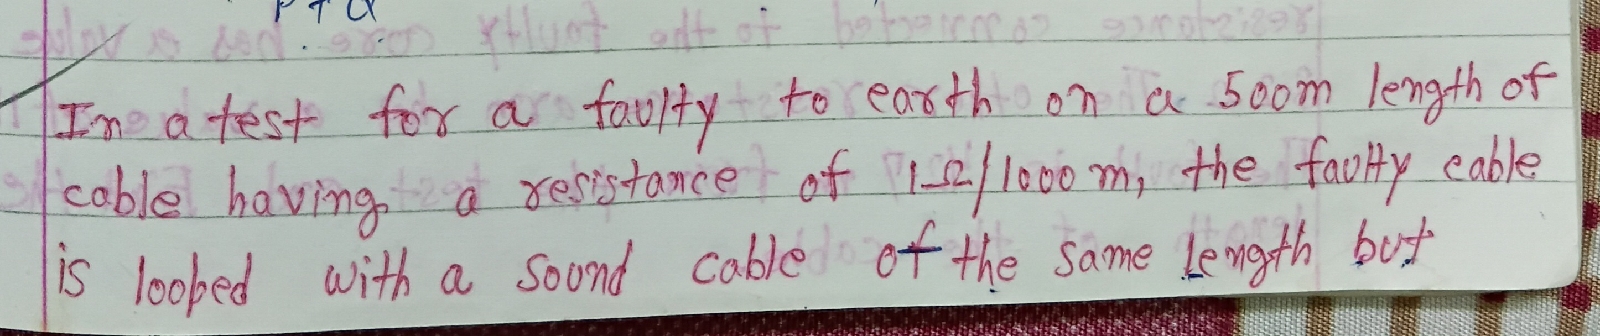 P + Q
In a test for a faulty to earth on a 500m length of
cable having a resistance of 1Ω/1000 m, the faulty cable
is looped with a sound cable of the same length but